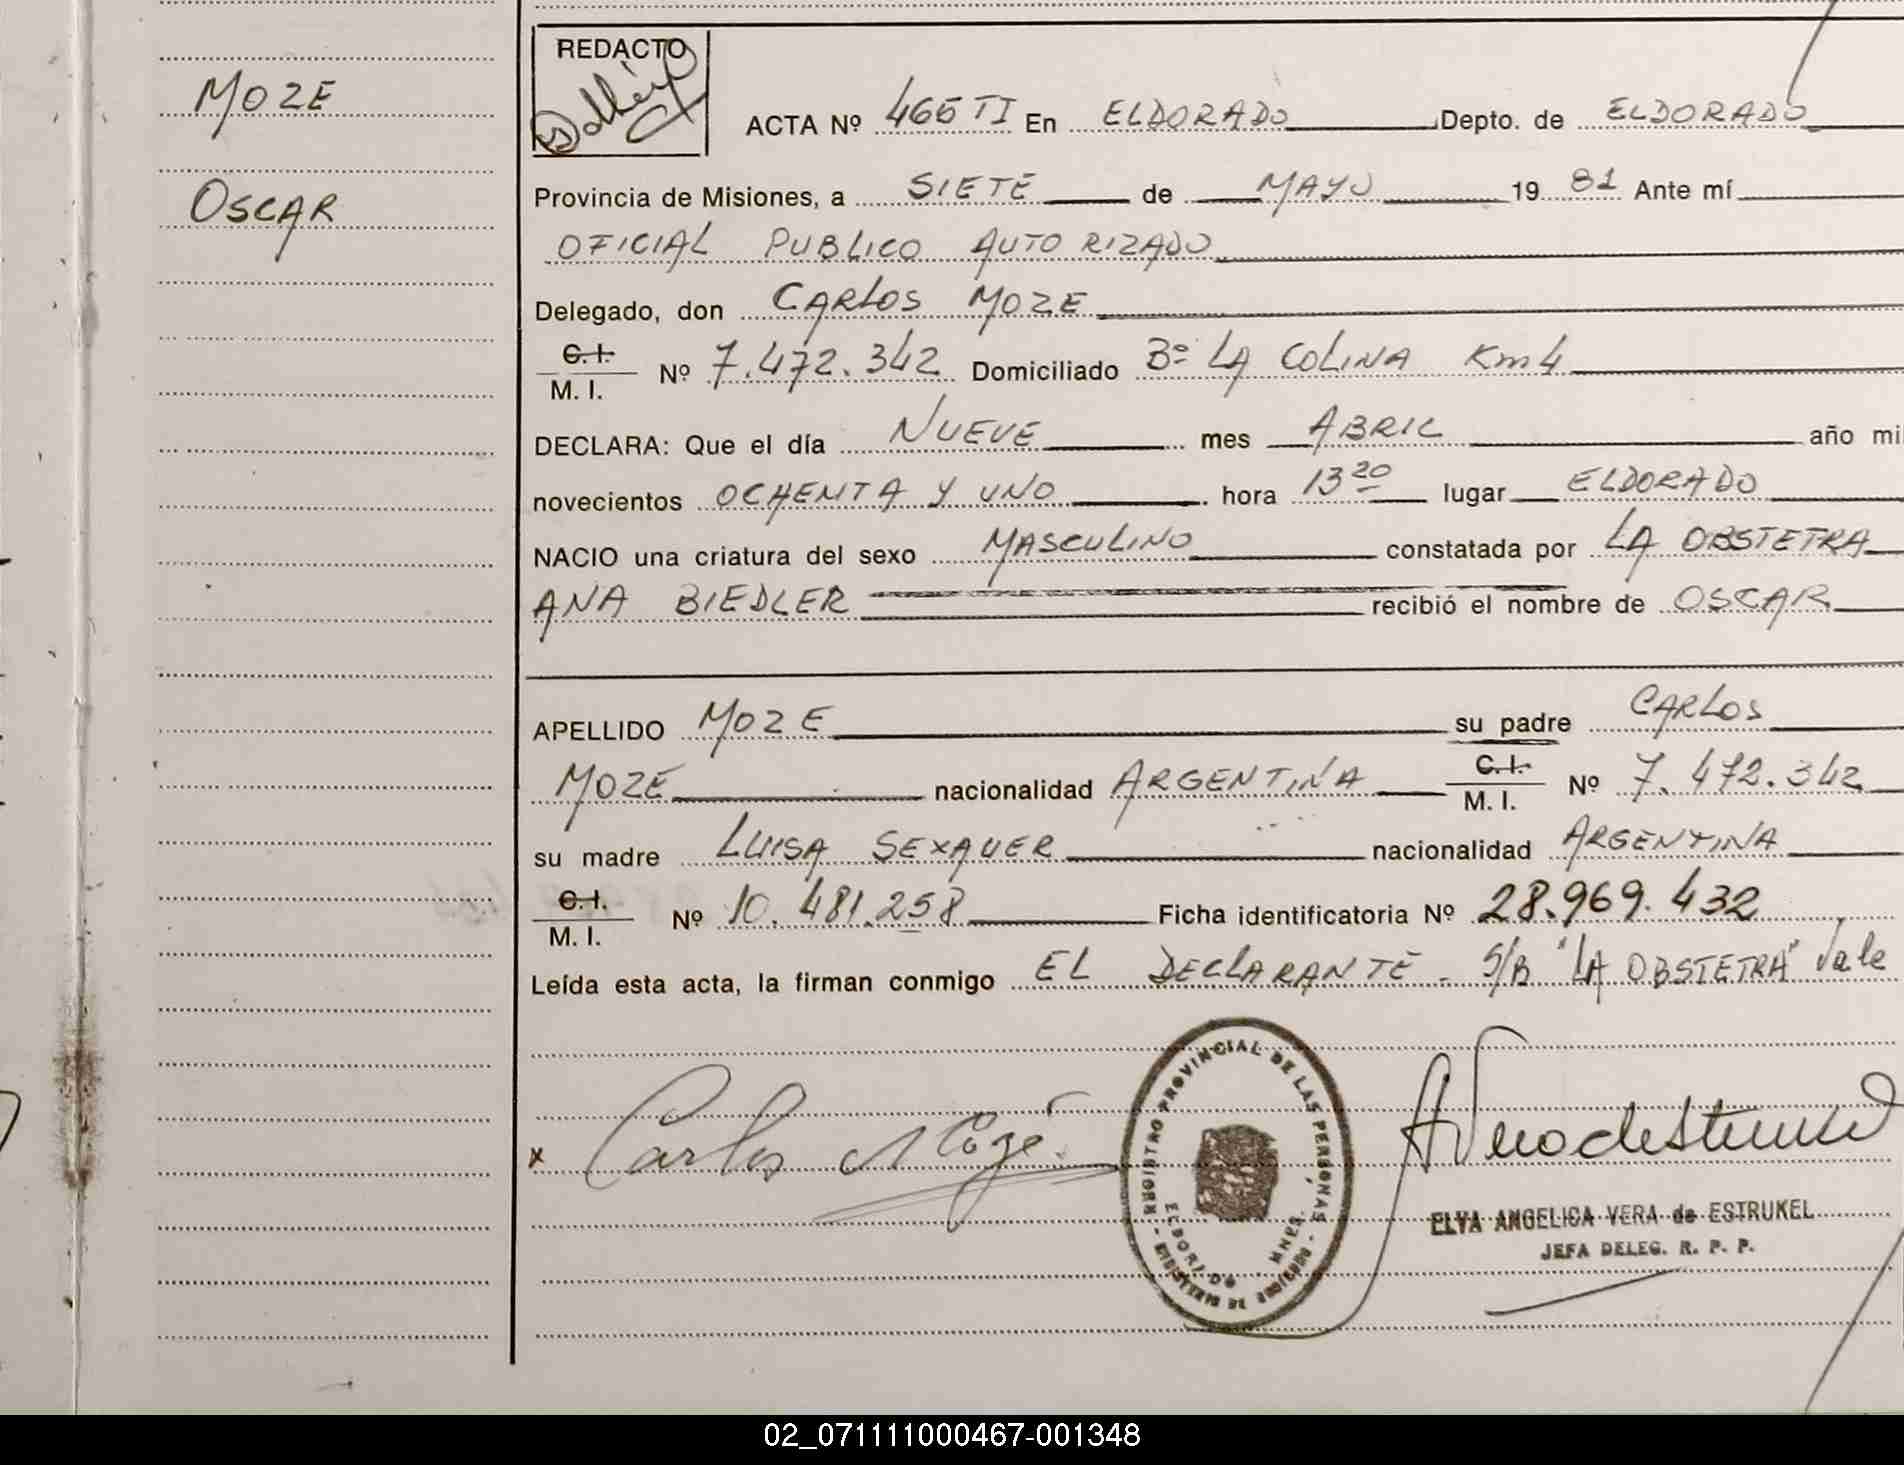 MOZE
OSCAR
REDACTO
ACTA Nº 466 TI En ELDORADO Depto. de ELDORADO
Provincia de Misiones, a SIETE de MAYO 19 81 Ante mí
OFICIAL PUBLICO AUTORIZADO
Delegado, don CARLOS MOZE
C. I.
M. I. Nº 7.472.342 Domiciliado Bº LA COLINA Km 4
DECLARA: Que el día NUEVE mes ABRIL año mi
novecientos OCHENTA Y UNO hora 13 20 lugar ELDORADO
NACIO una criatura del sexo MASCULINO constatada por LA OBSTETRA
ANA BIEDLER recibió el nombre de OSCAR
APELLIDO MOZE su padre CARLOS
MOZE nacionalidad ARGENTINA C. I. M. I. Nº 7.472.342
su madre LUISA SEXAUER nacionalidad ARGENTINA
C. I.
M. I. Nº 10.481.258 Ficha identificatoria Nº 28.969.432
Leída esta acta, la firman conmigo EL DECLARANTE - S/B "LA OBSTETRA" Vale
x Carlos Moze
REGISTRO PROVINCIAL DE LAS PERSONAS
ELDORADO MNES.
ELVA ANGELICA VERA de ESTRUKEL
JEFA DELEG. R. P. P.
02_071111000467-001348